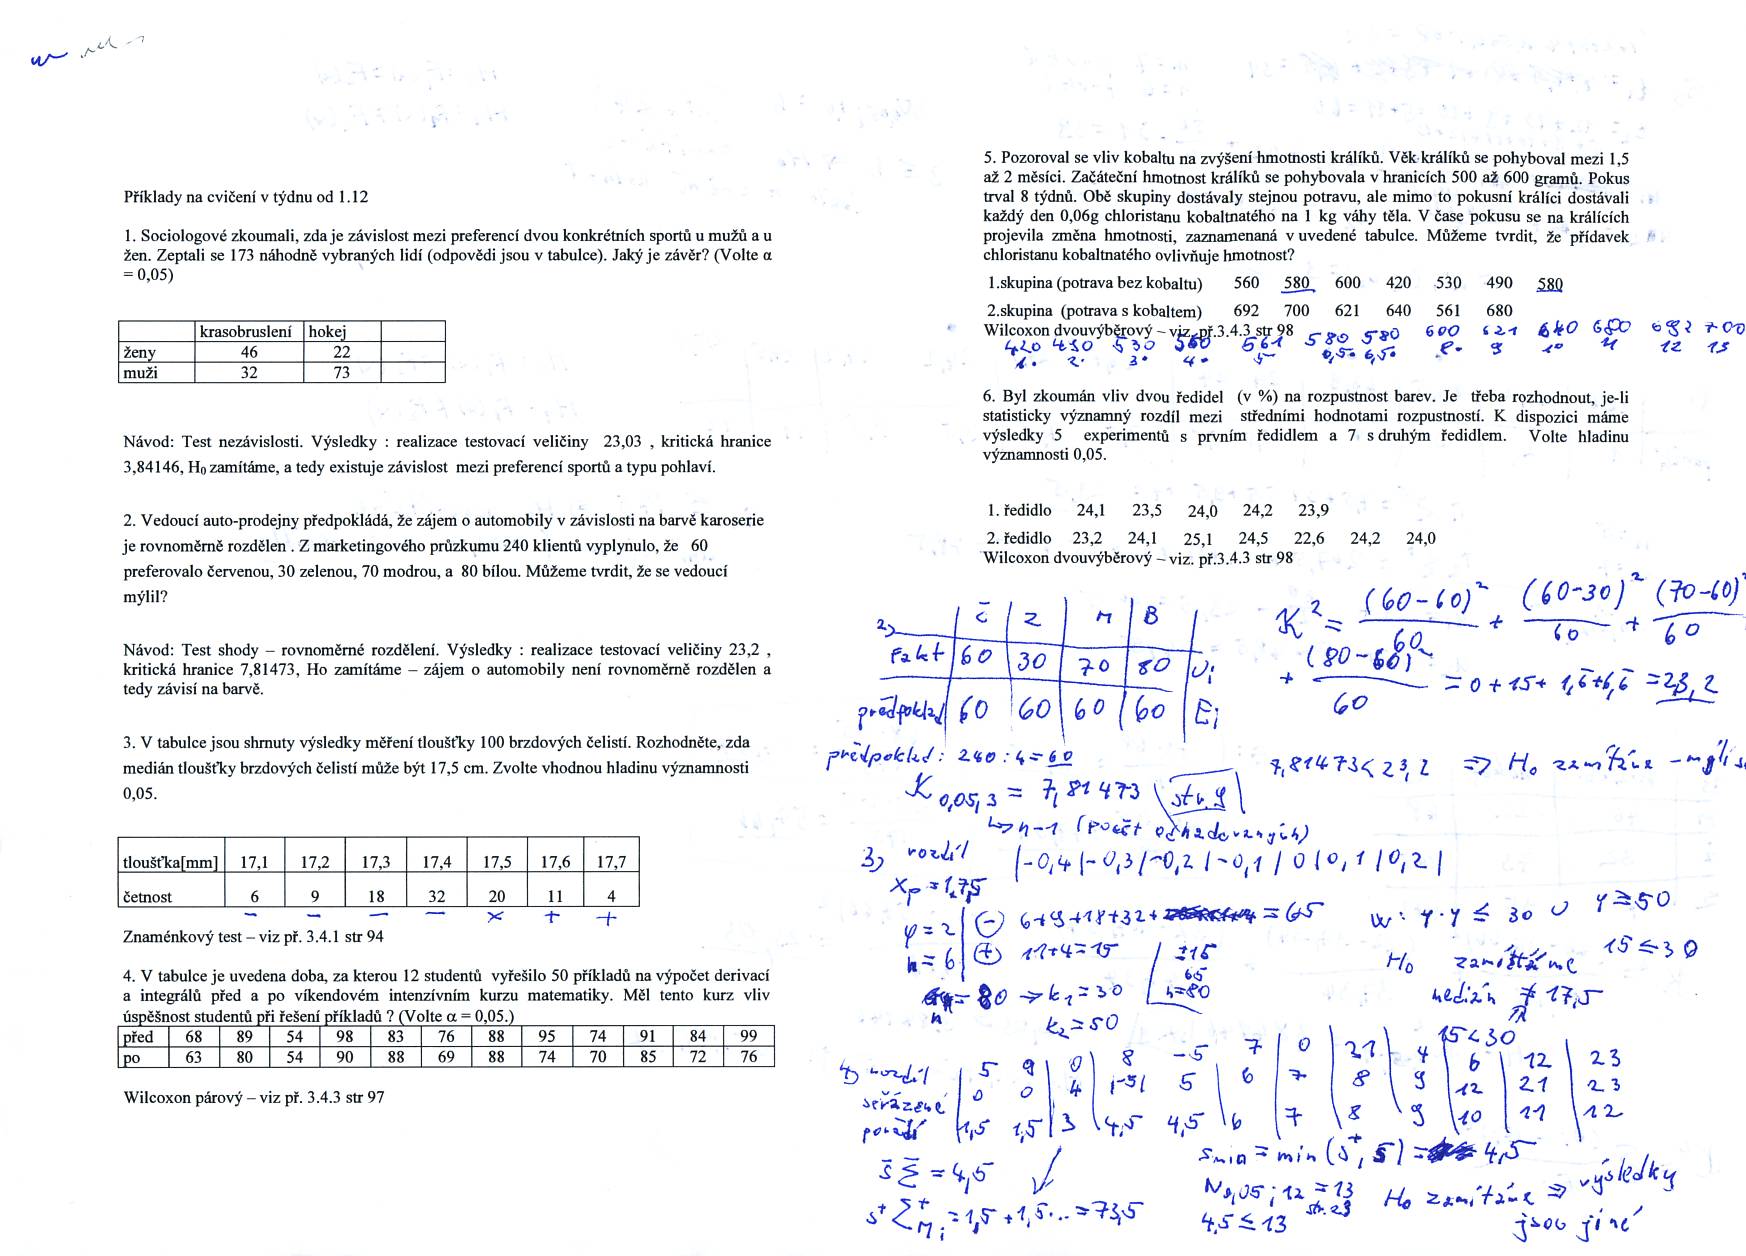 Příklady na cvičení v týdnu od 1.12
1. Sociologové zkoumali, zda je závislost mezi preferencí dvou konkrétních sportů u mužů a u
žen. Zeptali se 173 náhodně vybraných lidí (odpovědi jsou v tabulce). Jaký je závěr? (Volte α
= 0,05)
krasobruslení hokej
ženy 46 22
muži 32 73
Návod: Test nezávislosti. Výsledky : realizace testovací veličiny 23,03 , kritická hranice
3,84146, H₀ zamítáme, a tedy existuje závislost mezi preferencí sportů a typu pohlaví.
2. Vedoucí auto-prodejny předpokládá, že zájem o automobily v závislosti na barvě karoserie
je rovnoměrně rozdělen . Z marketingového průzkumu 240 klientů vyplynulo, že 60
preferovalo červenou, 30 zelenou, 70 modrou, a 80 bílou. Můžeme tvrdit, že se vedoucí
mýlil?
Návod: Test shody – rovnoměrné rozdělení. Výsledky : realizace testovací veličiny 23,2 ,
kritická hranice 7,81473, Ho zamítáme – zájem o automobily není rovnoměrně rozdělen a
tedy závisí na barvě.
3. V tabulce jsou shrnuty výsledky měření tloušťky 100 brzdových čelistí. Rozhodněte, zda
medián tloušťky brzdových čelistí může být 17,5 cm. Zvolte vhodnou hladinu významnosti
0,05.
tloušťka[mm] 17,1 17,2 17,3 17,4 17,5 17,6 17,7
četnost 6 9 18 32 20 11 4
− − − − × + +
Znaménkový test – viz př. 3.4.1 str 94
4. V tabulce je uvedena doba, za kterou 12 studentů vyřešilo 50 příkladů na výpočet derivací
a integrálů před a po víkendovém intenzívním kurzu matematiky. Měl tento kurz vliv
úspěšnost studentů při řešení příkladů ? (Volte α = 0,05.)
před 68 89 54 98 83 76 88 95 74 91 84 99
po 63 80 54 90 88 69 88 74 70 85 72 76
Wilcoxon párový – viz př. 3.4.3 str 97
5. Pozoroval se vliv kobaltu na zvýšení hmotnosti králíků. Věk králíků se pohyboval mezi 1,5
až 2 měsíci. Začáteční hmotnost králíků se pohybovala v hranicích 500 až 600 gramů. Pokus
trval 8 týdnů. Obě skupiny dostávaly stejnou potravu, ale mimo to pokusní králíci dostávali
každý den 0,06g chloristanu kobaltnatého na 1 kg váhy těla. V čase pokusu se na králících
projevila změna hmotnosti, zaznamenaná v uvedené tabulce. Můžeme tvrdit, že přídavek
chloristanu kobaltnatého ovlivňuje hmotnost?
1.skupina (potrava bez kobaltu) 560 580 600 420 530 490 580
2.skupina (potrava s kobaltem) 692 700 621 640 561 680
Wilcoxon dvouvýběrový – viz. př.3.4.3 str 98
420 490 530 560 561 580 580 600 621 640 680 692 700
1. 2. 3. 4. 5 6,5. 6,5. 8. 9 10 11 12 13
6. Byl zkoumán vliv dvou ředidel (v %) na rozpustnost barev. Je třeba rozhodnout, je-li
statisticky významný rozdíl mezi středními hodnotami rozpustností. K dispozici máme
výsledky 5 experimentů s prvním ředidlem a 7 s druhým ředidlem. Volte hladinu
významnosti 0,05.
1. ředidlo 24,1 23,5 24,0 24,2 23,9
2. ředidlo 23,2 24,1 25,1 24,5 22,6 24,2 24,0
Wilcoxon dvouvýběrový – viz. př.3.4.3 str 98
2) Č Z M B
Fakt 60 30 70 80 Oi
předpoklad 60 60 60 60 Ei
předpoklad: 240 : 4 = 60
K² = (60-60)²/60 + (60-30)²/60 + (70-60)²/60
+ (80-60)²/60 = 0 + 15 + 1,6 + 6,6 = 23,2
7,81473 < 23,2 => H₀ zamítáme -
K 0,05,3 = 7,81473 str. 9
↳ n-1 (počet odhadovaných)
3) rozdíl |-0,4|-0,3|-0,2|-0,1|0|0,1|0,2|
xp = 17,5
φ = 2 (−) 6+9+18+32+ = 65
h = 6 (+) 11+4 = 15
n = 80 → k₁ = 30
k₂ = 50
±15
65
n=80
W: Y·Y ≤ 30 ∪ Y ≥ 50
15 ≤ 30
H₀ zamítáme
medián ≠ 17,5
15 < 30
4) rozdíl 5 9 0 8 -5 7 0 21 4 6 12 23
seřazené 0 0 4 |-5| 5 6 7 8 9 12 21 23
pořadí 1,5 1,5 3 4,5 4,5 6 7 8 9 10 11 12
s̄ Σ̄ = 4,5
s⁺ Σ⁺ Mi = 1,5 + 1,5 ... = 73,5
Smin = min (S⁺, S) = 4,5
N 0,05; 12 = 13
str. 23
4,5 ≤ 13
H₀ zamítáme => výsledky
jsou jiné